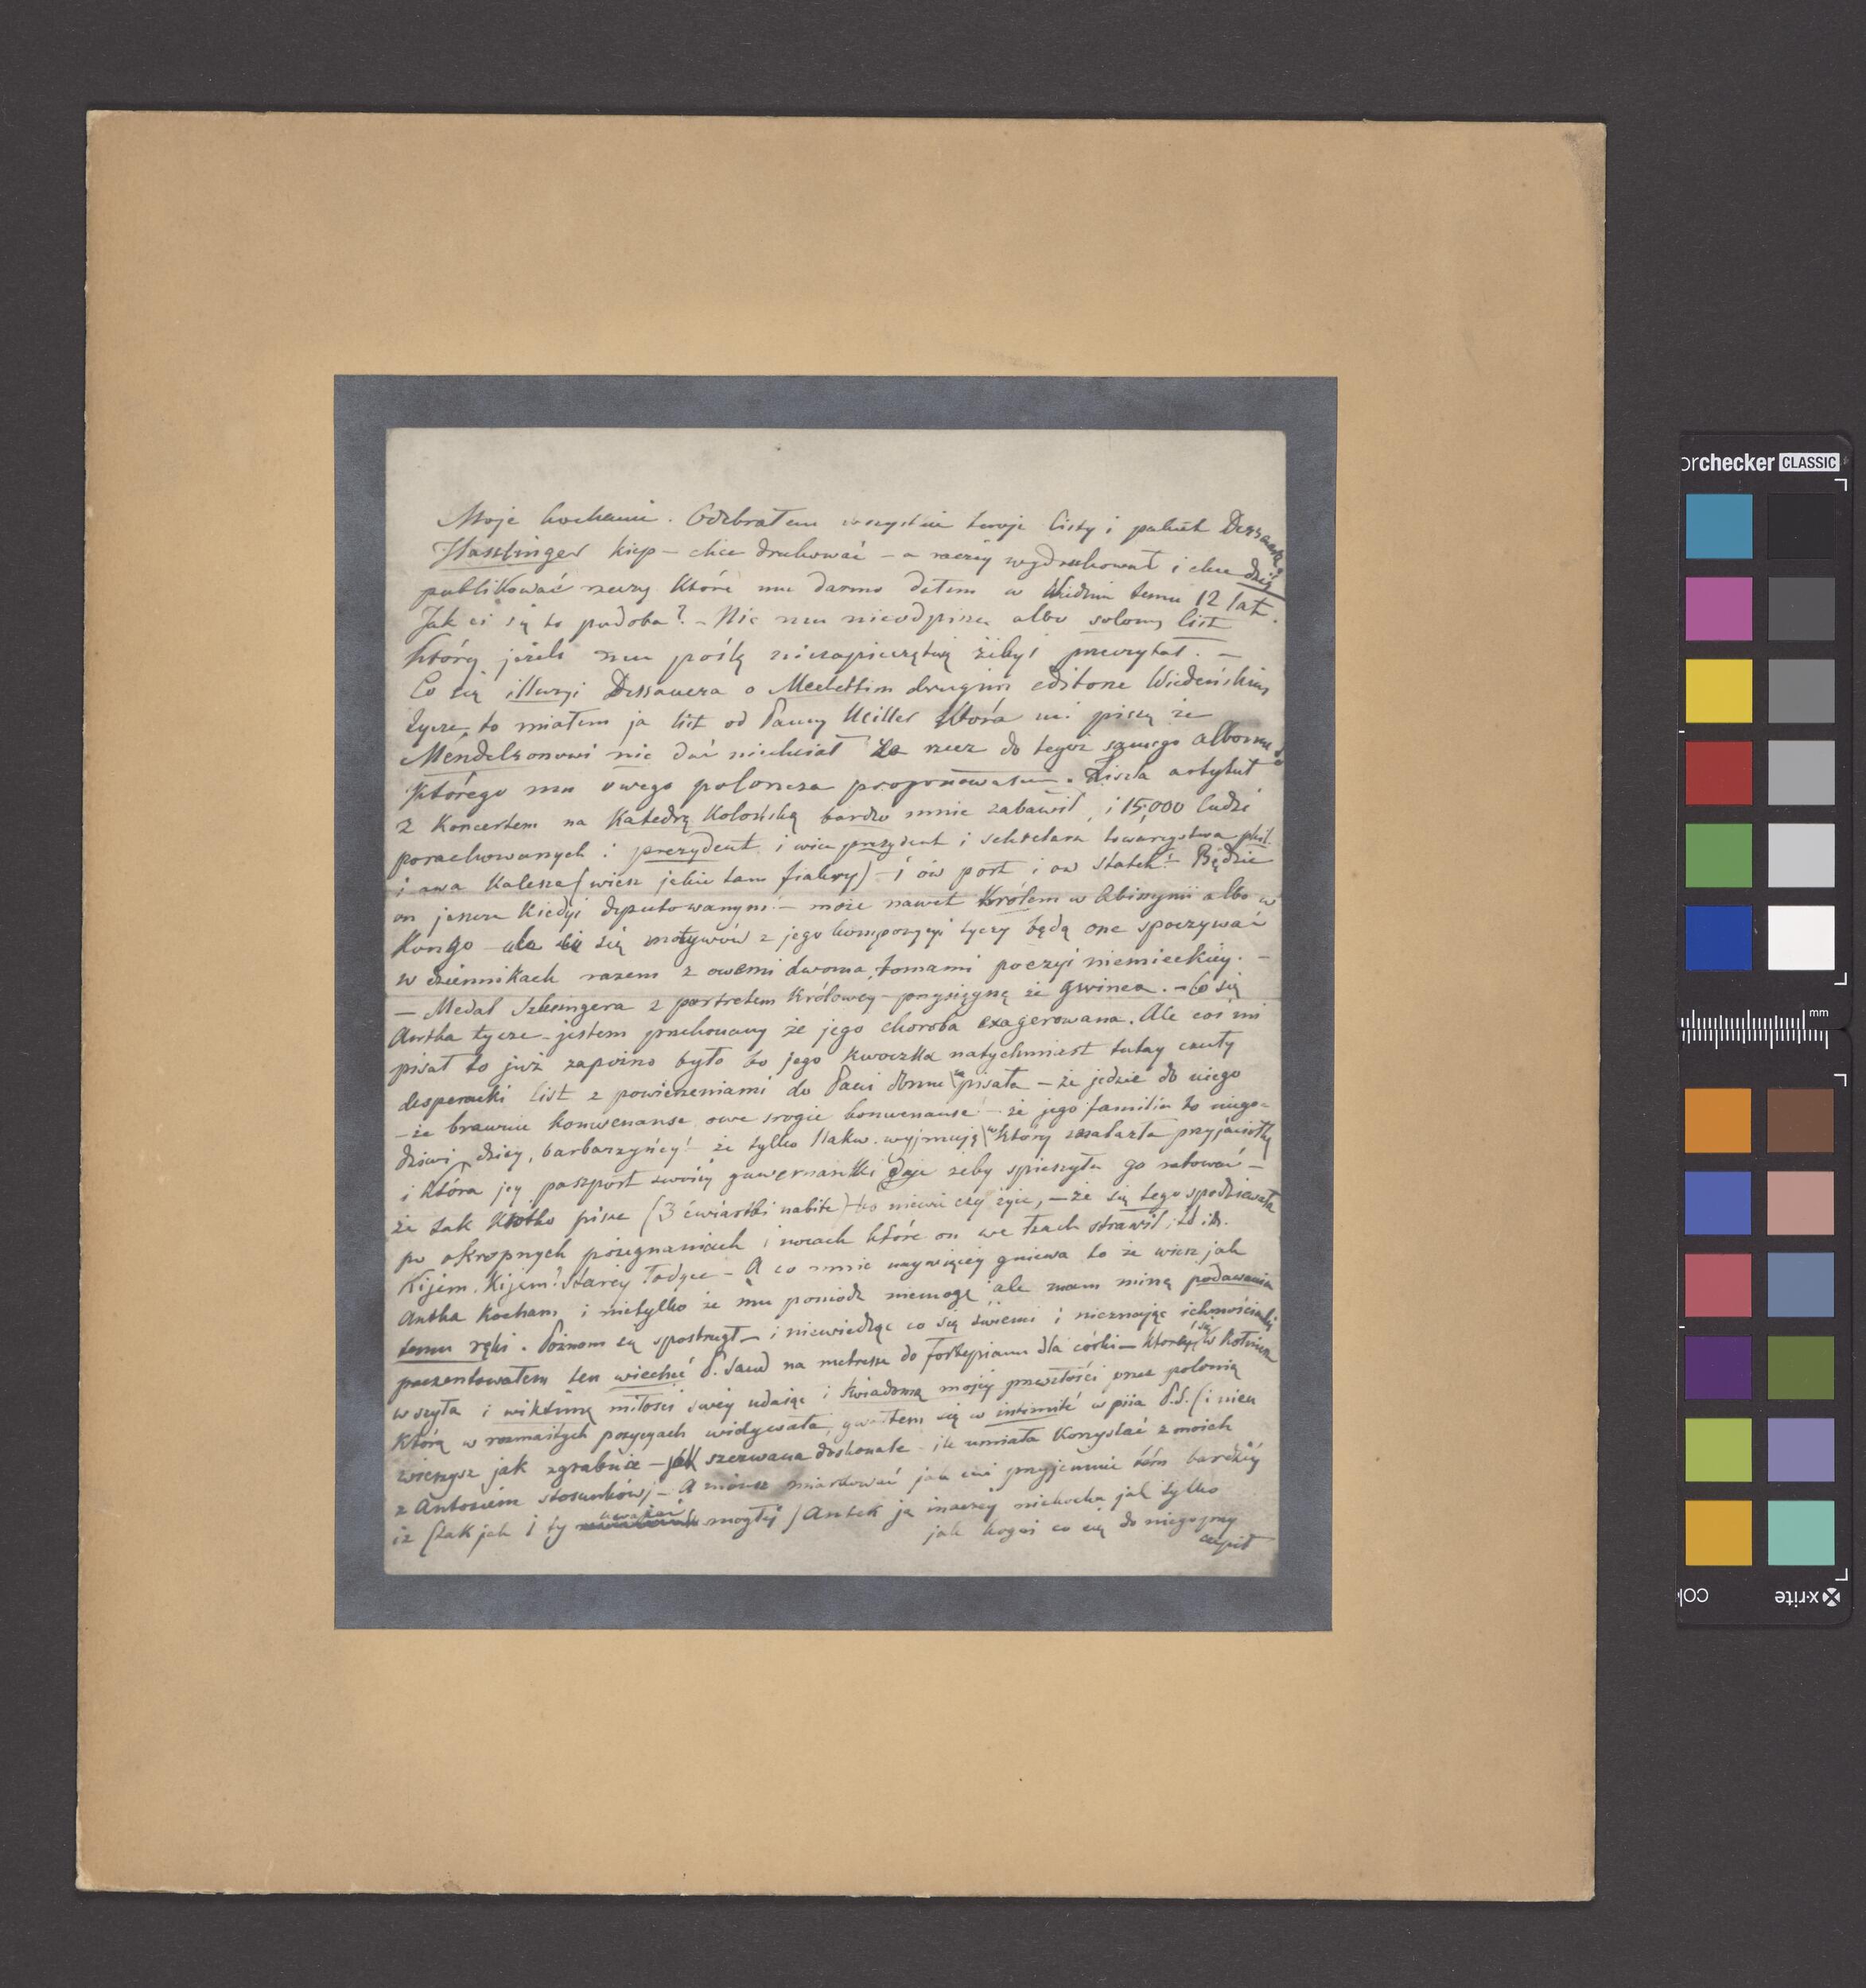 Moje kochanie. Odebrałem wszystkie twoje listy i pakiet Dessauera
Hasslinger kiep – chce drukować – a raczéj wydrukował i chce dziś
publikować rzeczy które mu darmo dałem w Widniu temu 12 lat.
Jak ci się to podoba? – Nic mu nieodpiszę albo solony list
który jeżeli mu poślę niezapieczętuję żebyś przeczytał. –
Co się illuzyi Dessauera o Mechettim drugim editorze Wiedeńskim
tycze, to miałem ja list od Panny Müller która mi pisze że
Mendelsonowi nic dać niechciał za rzecz do tegoż samego albomu do
którego mu owego poloneza proponowałem. Liszta artykuł
z Koncertem na Katedrę Kolońską bardzo mnie zabawił, i 15,000 ludzi
porachowanych i prezydent i wice prezydent i sekretarz towarzystwa phil.
i owa Kalesza (wiesz jakie tam fiakry) – i ów port i ów statek! – Będzie
on jeszcze kiedyś deputowanym! – może nawet Królem w Abissynii albo w
Kongo – ale co się motywów z jego kompozycyi tyczy będą one spoczywać
w dziennikach razem z owemi dwoma tomami poezyi niemieckiéy. –
– Medal Szlesingera z portretem Królowey – przysięgnę że gwinea. – Co się
Antka tycze – jestem przekonany że jego choroba exagerowana. Ale coś mi
pisał to już zapóźno było bo jego kwoczka natychmiast tutay czuły
desperacki list z powierzeniami do Pani domu pisała – że jedzie do niego
– że brawuie konwenanse owe srogie konwenanse! – że jego familia to niego-
dziwi, dzicy, barbarzyńcy! – że tylko Nakw. wyjmuię w któréy znalazła przyjaciółkę
i która jey paszport swoiéy guwernantki daje żeby spieszyła go ratować –
że tak krótko pisze (3 ćwiartki nabite) bo niewie czy żyje, – że się tego spodziewała
po okropnych pożegnaniach i nocach które on we łzach strawił, itd itd.
Kijem, Kijem! Starey Łodydze – A co mnie naywięcéy gniewa to że wiesz jak
Antka kocham i nietylko że mu pomódz niemogę ale mam minę podawania
temu ręki. Późnom się spostrzegł – i niewiedząc co się święci i nieznając ichmościanki
prezentowałem ten wiecheć P. Sand na metressę do fortepianu dla córki – która się w kołnierz
wszyła i wiktimę miłości swéy udaiąc i świadomą mojéy przeszłości przez polonią
którą w rozmaitych pozycyach widywała gwałtem się w intimité wpiia P.S. (i nieu
wierzysz jak zgrabnie – jak szezwana doskonale – ile umiała korzystać z moich
z Antosiem stosunków) – A możesz miarkować jak mi przyjemnie tém bardziéy
iż (tak jak i ty uważać mogłeś) Antek ją inaczéy niekocha jak tylko
jak kogoś co się do niego przy
czepił